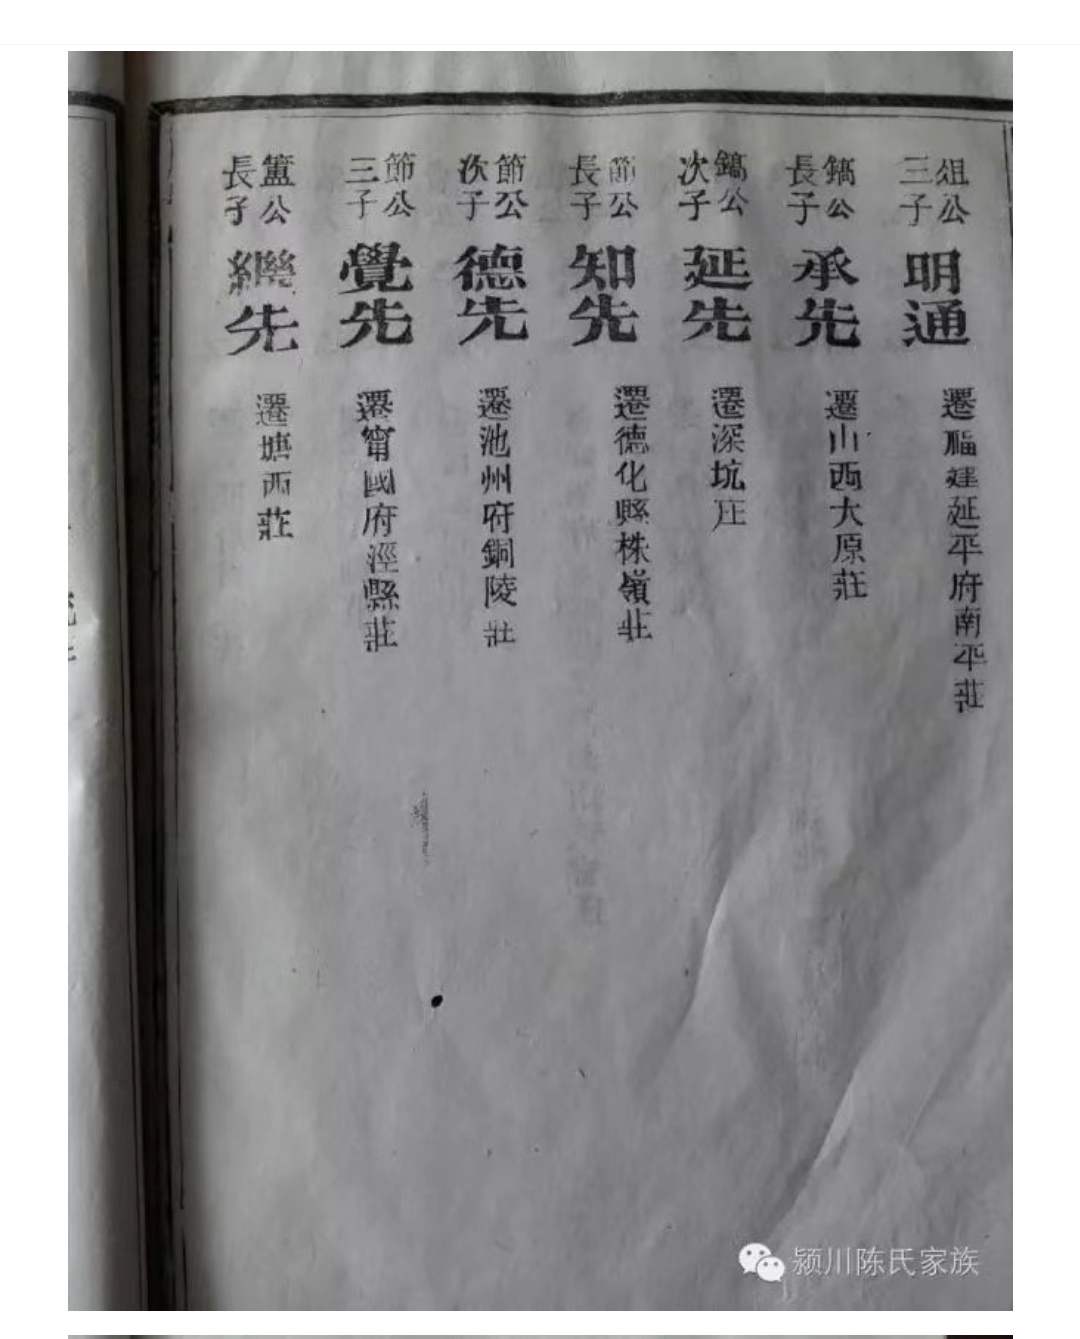 俎公三子 明通 遷福建延平府南平莊
鎬公長子 承先 遷山西大原莊
鎬公次子 延先 遷深坑庄
節公長子 知先 遷德化縣株嶺莊
節公次子 德先 遷池州府銅陵莊
節公三子 覺先 遷甯國府涇縣莊
簠公長子 繼先 遷塘西莊
颍川陈氏家族